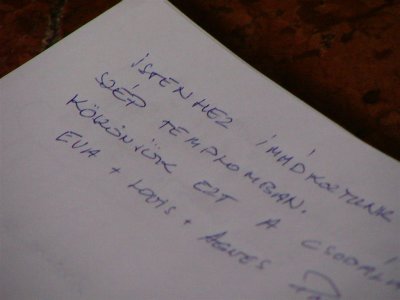 ISTENHEZ IMÁDKOZTUNK
SZÉP TEMPLOMBAN.
KÖSZÖNJÜK EZT A
EVA + LOUIS + AGNES